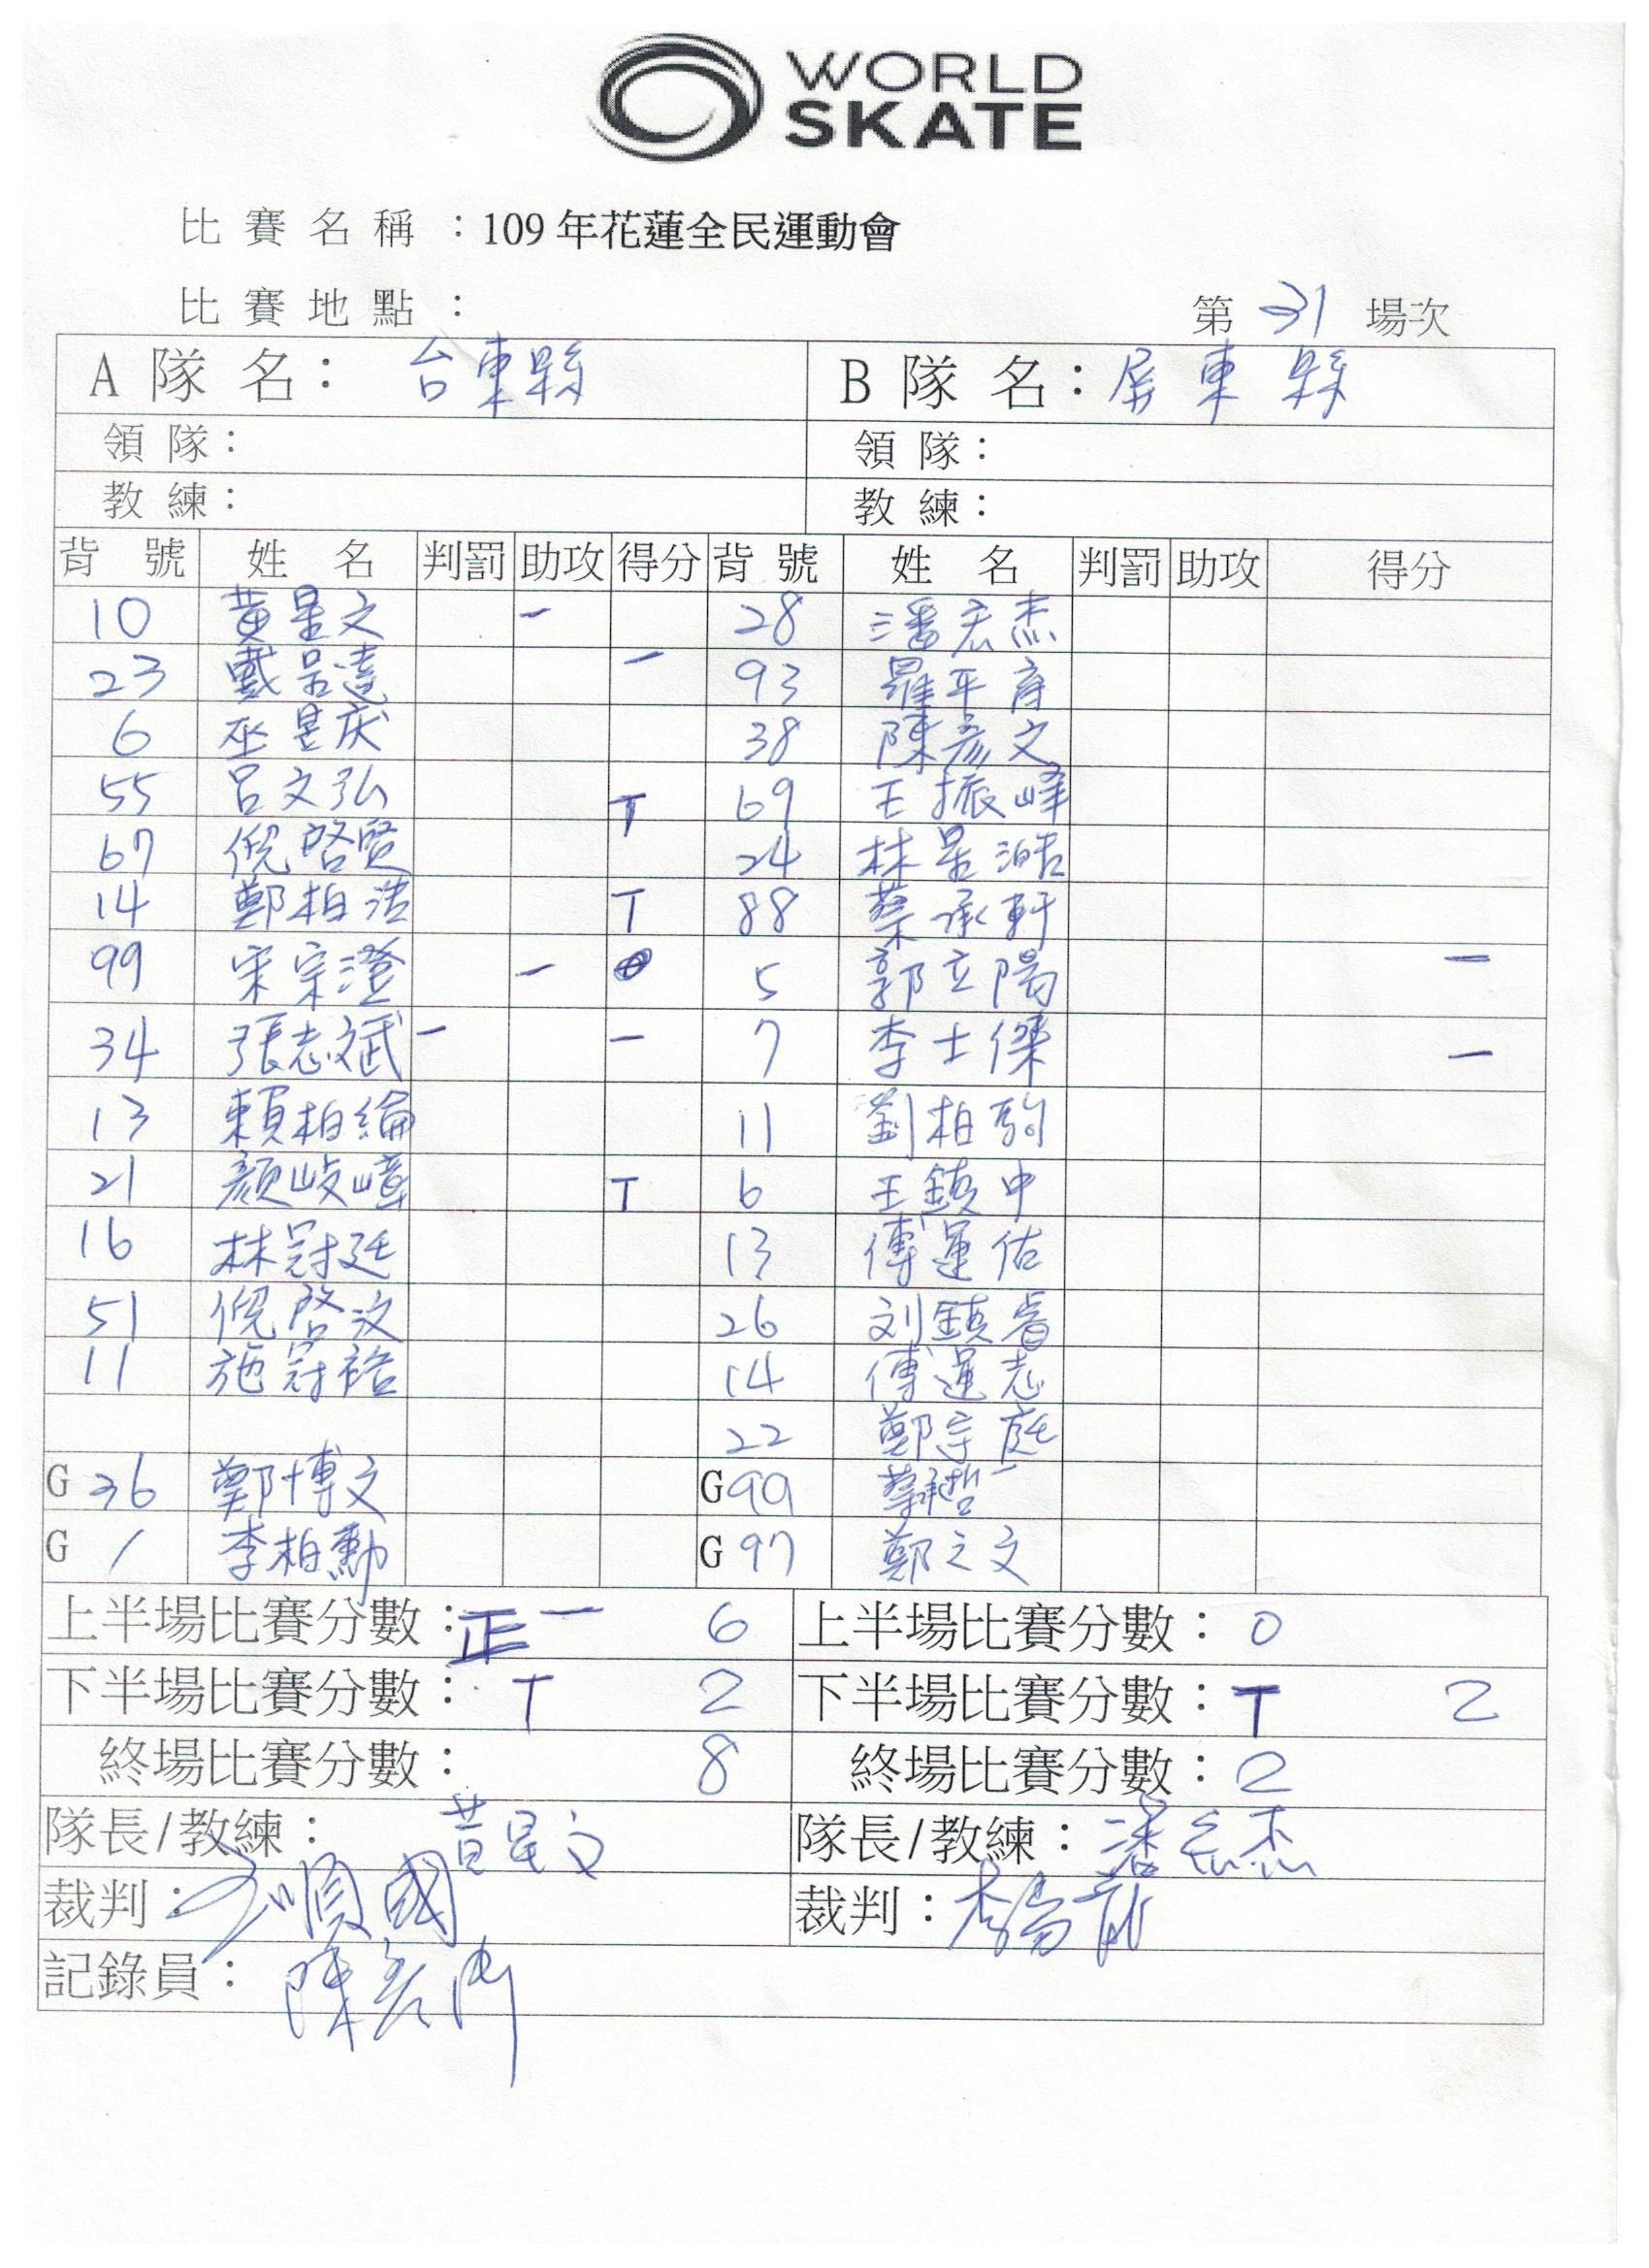 WORLD
SKATE
比賽名稱：109年花蓮全民運動會
比賽地點：
第 31 場次
A 隊 名： 台東縣 B 隊 名： 屏東縣
領 隊： 領 隊：
教 練： 教 練：
背 號 姓 名 判罰 助攻 得分 背 號 姓 名 判罰 助攻 得分
10 黃星文 一 28 潘宏杰
23 戴呂達 一 93 羅平育
6 巫昱庆 38 陳彥文
55 呂文弘 T 69 王振峰
67 倪啓賢 24 林星澔
14 鄭柏浩 T 88 蔡承軒
99 宋宗澄 一 5 郭立陽 一
34 張志斌 一 一 7 李士傑 一
13 賴柏綸 11 劉柏駒
21 顏岐嶂 T 6 王鎮中
16 林冠廷 13 傅運佑
51 倪啓汶 26 刘鎮睿
11 施冠裕 14 傅運志
22 鄭宗庭
G 36 鄭博文 G 99 蔡承哲
G 1 李柏勳 G 97 鄭之文
上半場比賽分數： 正一 6 上半場比賽分數： 0
下半場比賽分數： T 2 下半場比賽分數： T 2
終場比賽分數： 8 終場比賽分數： 2
隊長/教練： 黃星文 隊長/教練： 潘宏杰
裁判： 順國 裁判： 李
記錄員： 陳